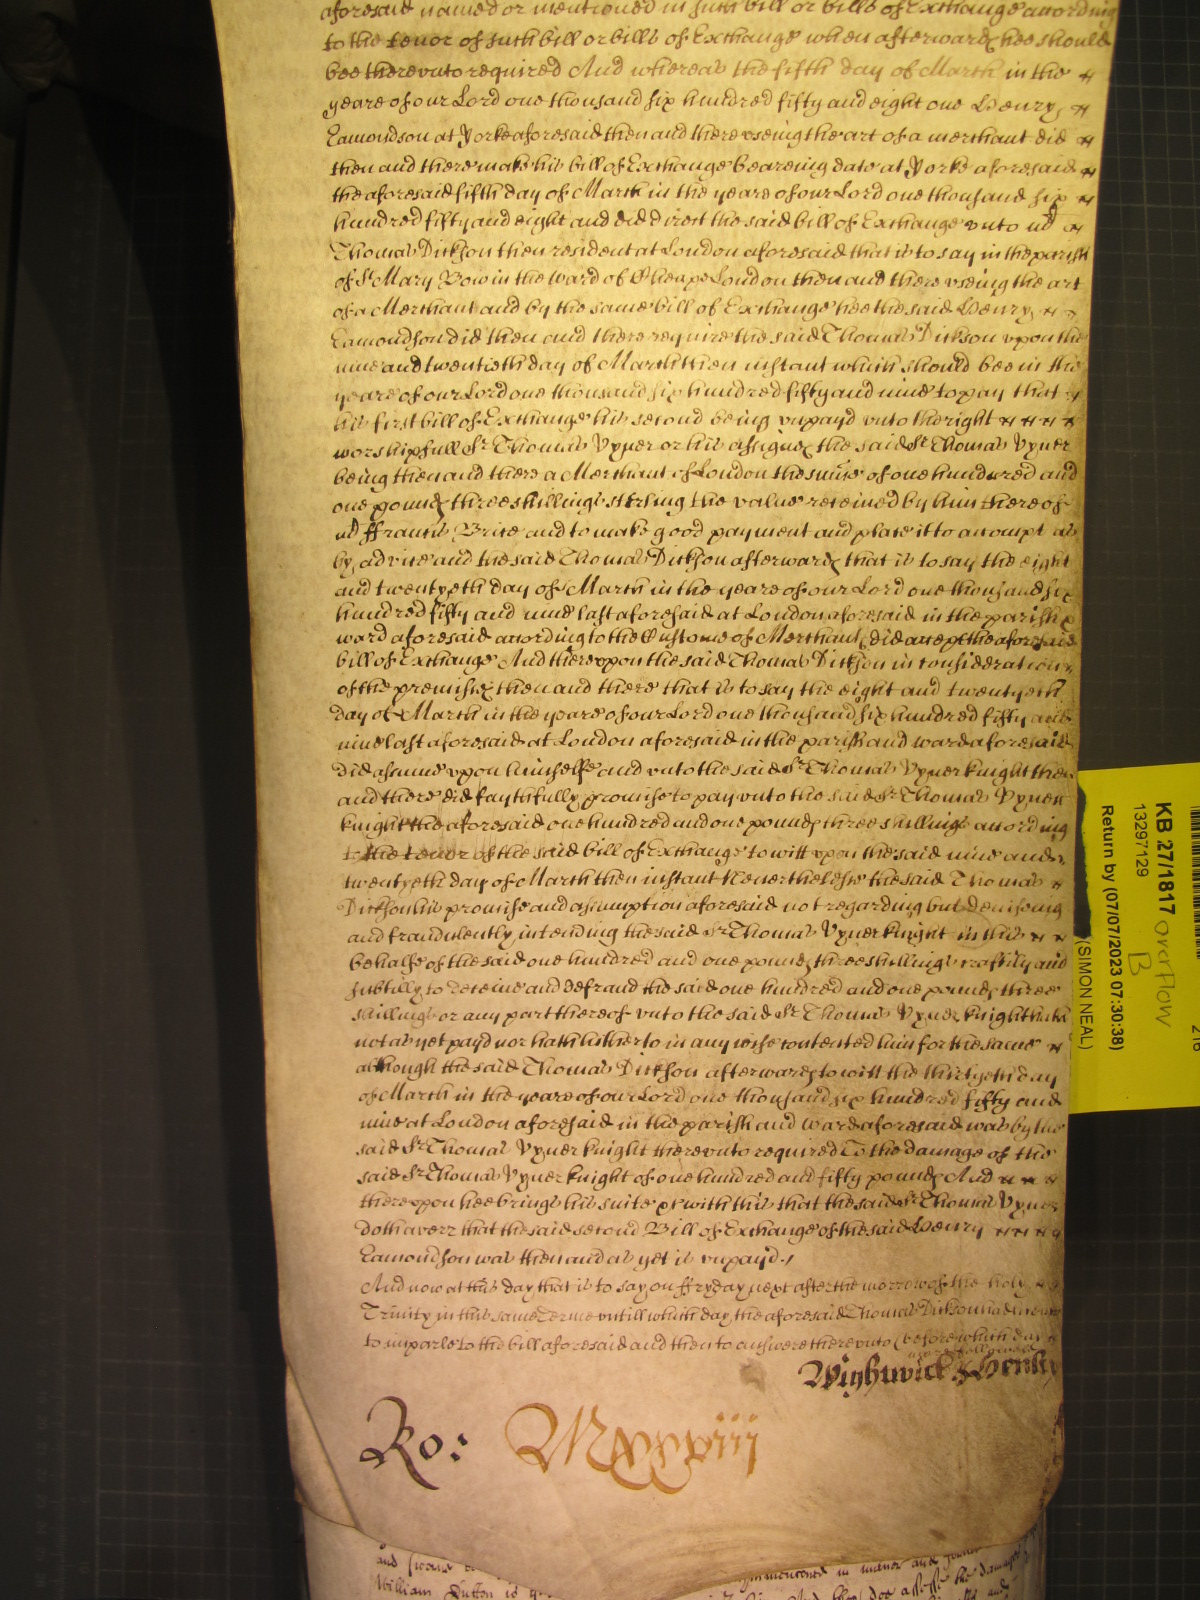 aforesaid named or mentioned in such bill or bills of Exchange according
to the tenor of such bill or bills of Exchange when afterwards hee should
bee therevnto required And whereas the fifth day of March in the
yeare of our Lord one thousand six hundred fifty and eight one Henry
Eamondson at Yorke aforesaid then and there vseing the art of a merchant did
then and there make his bill of Exchange beareing date at Yorke aforesaid
the aforesaid fifth day of March in the yeare of our Lord one thousand six
hundred fifty and eight and did direct the said bill of Exchange vnto one
Thomas Dickson then resident at London aforesaid that is to say in the parish
of St Mary Bow in the ward of Cheape London then and there vseing the art
of a Merchant and by the same bill of Exchange hee the said Henry
Eamondson did then and there require the said Thomas Dickson vpon the
nine and twentieth day of March then instant which should bee in the
yeare of our Lord one thousand six hundred fifty and nine to pay that
his first bill of Exchange his second being vnpayd vnto the right
worshipfull Sr Thomas Vyner or his assignes the said Sr Thomas Vyner
being then and there a Merchant of London the sume of one hundred and
one pounds three shillings sterling the value received by him there of
Ffrancis Brice and to make good payment and place it to accompt as
by advice and the said Thomas Dickson afterwards that is to say the eight
and twentyeth day of March in the yeare of our Lord one thousand six
hundred fifty and nine last aforesaid at London aforesaid in the parish &
ward aforesaid according to the Custome of Merchants did accept the aforesaid
bill of Exchange And therevpon the said Thomas Dickson in consideration
of the premisses then and there that is to say the eight and twentyeth
day of March in the yeare of our Lord one thousand six hundred fifty and
nine last aforesaid at London aforesaid in the parish and ward aforesaid
did assume vpon himselfe and vnto the said Sr Thomas Vyner knight then
and there did faythfully promise to pay vnto the said Sr Thomas Vyner
knight the aforesaid one hundred and one pounds three shillings according
to the tenor of the said bill of Exchange to witt vpon the said nine and
twentyeth day of March then instant Neverthelesse the said Thomas
Dickson his promise and assumption aforesaid not regarding but deviseing
and fraudulently intending the said Sr Thomas Vyner knight in this
behalfe of the said one hundred and one pounds three shillings craftily and
subtilly to deceive and defraud the said one hundred and one pounds three
shillings or any part thereof vnto the said Sr Thomas Vyner knight hath
not as yet payd nor hath hitherto in any wise contented him for the same
although the said Thomas Dickson afterwards to witt the thirtyeth day
of March in the yeare of our Lord one thousand six hundred fifty and
nine at London aforesaid in the parish and ward aforesaid was by the
said Sr Thomas Vyner knight therevnto required To the damage of the
said Sr Thomas Vyner knight of one hundred and fifty pounds And
therevpon hee brings his suite &c with this that the said Sr Thomas Vyner
doth averr that the said second Bill of Exchange of the said Henry
Eamondson was then and as yet is vnpayd
And now at this day that is to say on ffryday next after the morrow of the holy
Trinity in this same Terme vntill which day the aforesaid Thomas Dickson had
to imparle to the bill aforesaid and then to answere therevnto (before which day
Wightwick & Henley
Ro: Mxxxviij
and
William Sutton is
in manner and
assesse the damages
KB 27/1817 overflow
13297129 B
Return by (07/07/2023 07:30:38)
(SIMON NEAL)